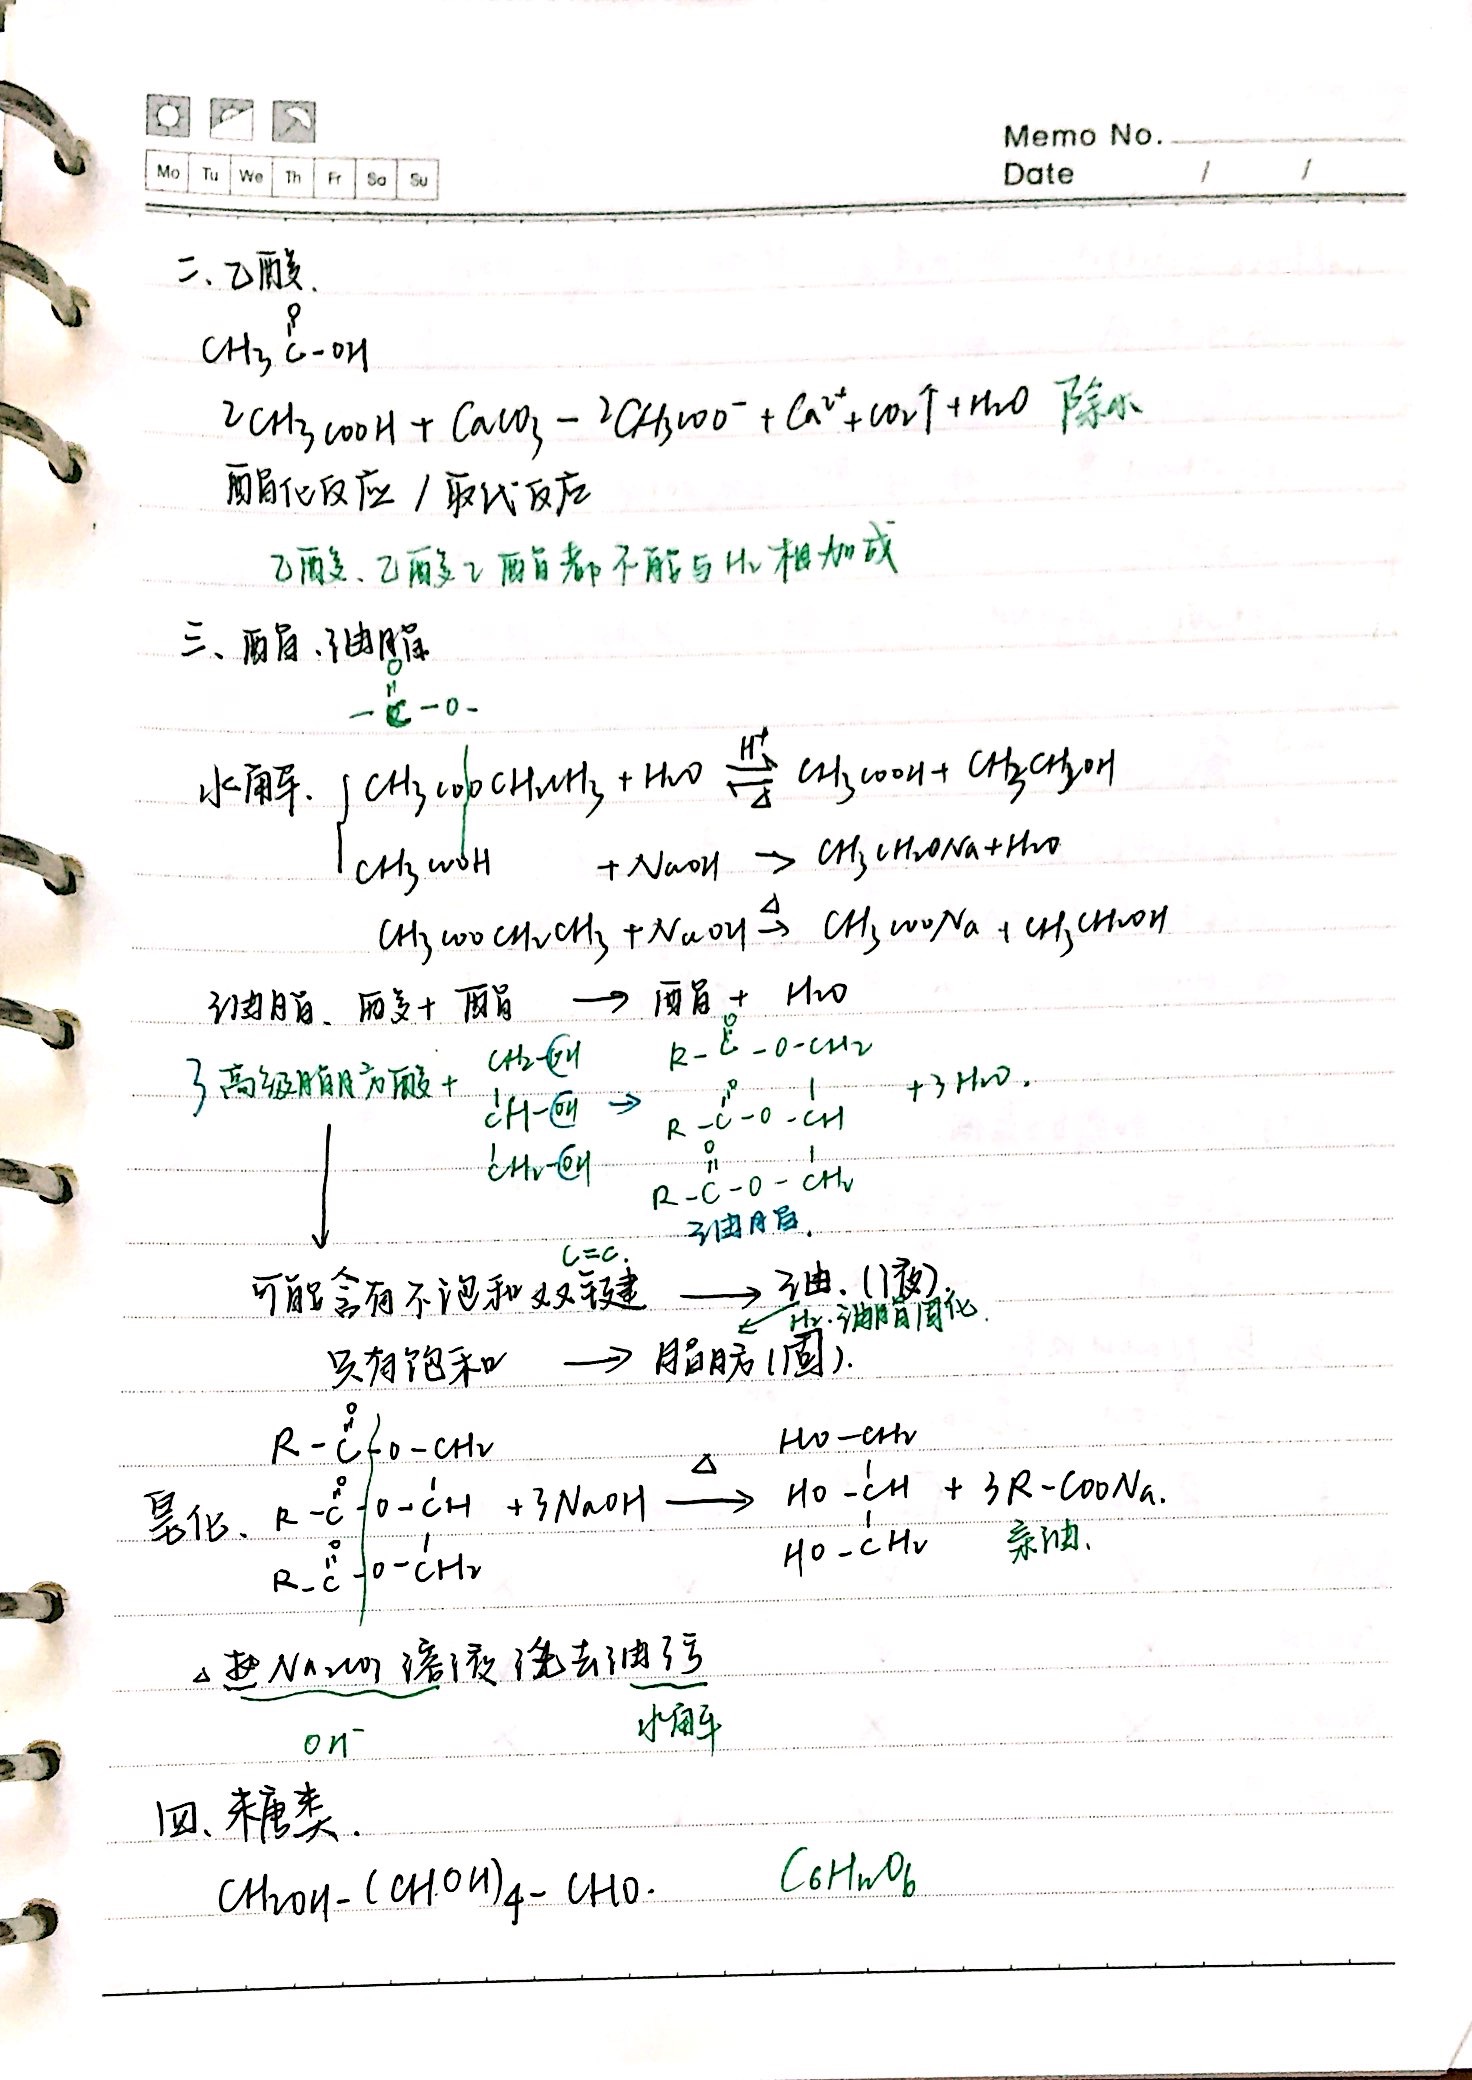 Memo No.
Mo Tu We Th Fr Sa Su
Date / /
二、乙酸.
O
CH3 C-OH
2CH3COOH + CaCO3 — 2CH3COO⁻ + Ca²⁺ + CO2↑ + H2O 除水
酯化反应 / 取代反应
乙酸、乙酸乙酯都不能与H2相加成
三、酯、油脂
O
-C-O-
水解. { CH3COOCH2CH3 + H2O ⇌ H⁺ △ CH3COOH + CH3CH2OH
CH3COOH + NaOH → CH3CH2ONa+H2O
CH3COOCH2CH3 + NaOH △→ CH3COONa + CH3CH2OH
油脂、酸+酯 → 酯 + H2O
3高级脂肪酸 + CH2-OH CH-OH CH2-OH → R-C-O-CH2 R-C-O-CH R-C-O-CH2 +3H2O.
油脂.
C=C.
可能含有不饱和双键 → 油.(液).
H2.油脂固化.
只有饱和 → 脂肪(固).
皂化、 R-C-O-CH2 R-C-O-CH R-C-O-CH2 +3NaOH △→ HO-CH2 HO-CH HO-CH2 + 3R-COONa.
亲油.
△ 热Na2CO3溶液洗去油污
OH⁻ 水解
四、糖类.
CH2OH-(CHOH)4-CHO. C6H12O6